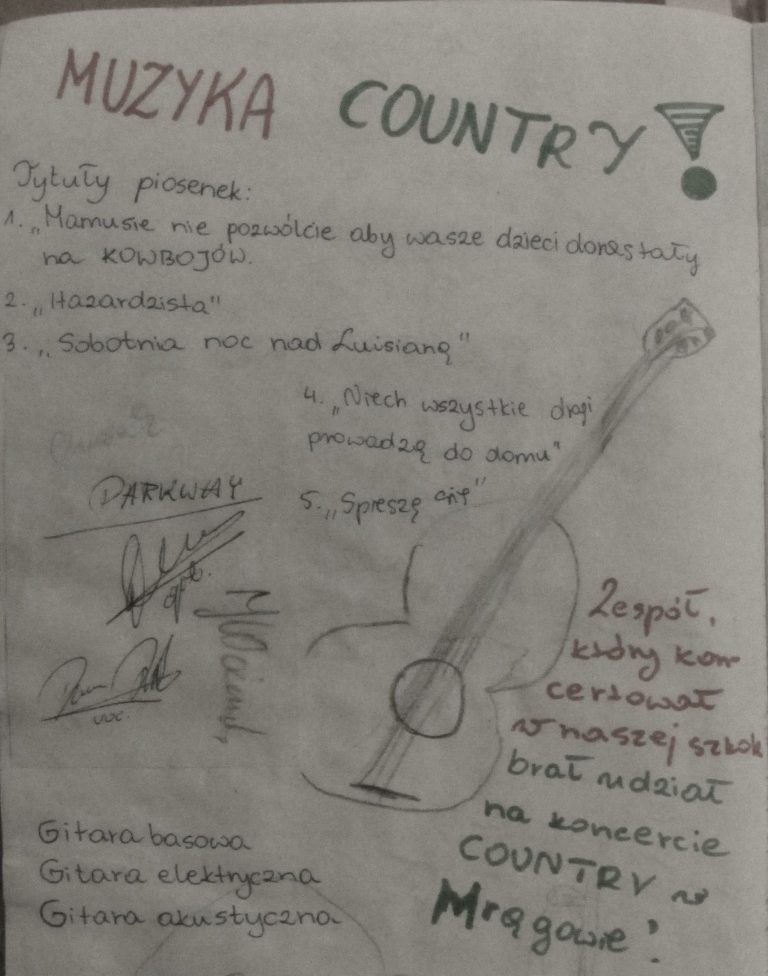 MUZYKA COUNTRY!
Tytuły piosenek:
1. „Mamusie nie pozwólcie aby wasze dzieci dorastały
na KOWBOJÓW.
2. „Hazardzista"
3. „Sobotnia noc nad Luisianą"
4. „Niech wszystkie drogi
prowadzą do domu"
5. „Spreszę cię"
DARKWAY
voc.
Zespół,
który kon-
certował
w naszej szkole
brał udział
na koncercie
COUNTRY w
Mrągowie!
Gitara basowa
Gitara elektryczna
Gitara akustyczna